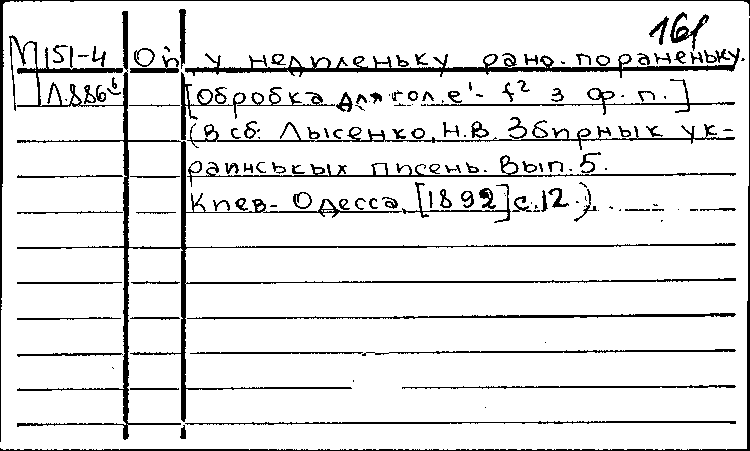 161
М151-4 Ой у недиленьку рано-пораненьку.
Л.886б [Обробка для гол. e¹- f² з ф.п.]
(В сб: Лысенко, Н.В. Збирнык ук-
раинськых писень. Вып. 5.
Киев-Одесса, [1892] с.12.).